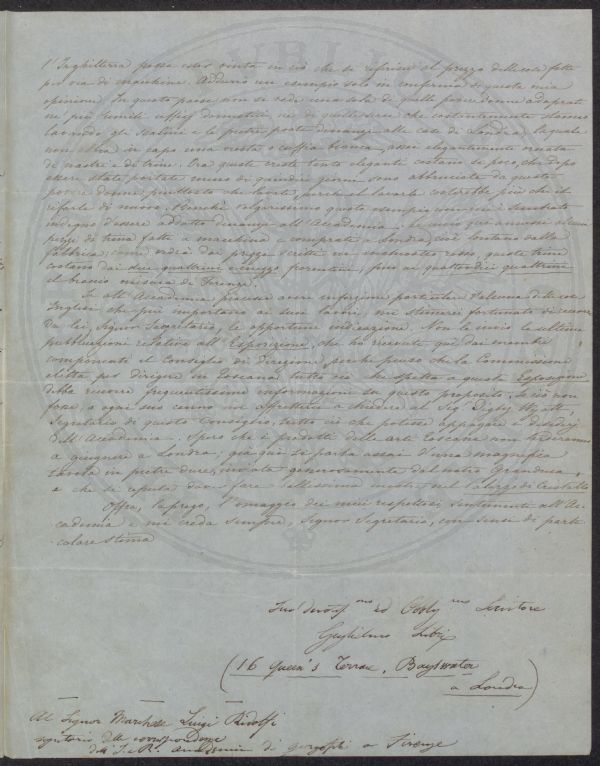 l'Inghilterra possa esser vinta in ciò che si riferisce al prezzo delle cose fatte
per via di macchine. Addurrò un esempio solo in conferma di questa mia
opinione. In questo paese non si vede una sola di quelle povere donne adoprate
ne' più umili uffizj domestici, nè di quelle serve che costantemente stanno
lavando gli scalini e le pietre poste dinanzi alle case di Londra, la quale
non abbia in capo una cresta o cuffia bianca, assai elegantemente ornata
di nastri e di trine. Ora queste creste tanto eleganti costano sì poco, che dopo
essere state portate meno di quindici giorni sono abbruciate da queste
povere donne, piuttosto che lavate, perchè il lavarle costerebbe più che il
rifarle di nuovo. Benchè volgarissimo questo esempio non mi è sembrato
indegno d'essere addotto dinanzi all'Accademia. Le invio qui annessi alcuni
pezzi di trina fatti a macchina e comprati a Londra, cioè lontano dalla
fabbrica; come vedrà dai prezzi scritti in inchiostro rosso, queste trine
costano dai due quattrini e mezzo fiorentini, fino ai quattordici quattrini
il braccio misura di Firenze.
Se all'Accademia piacesse avere informazioni particolari d'alcuna delle cose
Inglesi che più importano ai suoi lavori, mi stimerei fortunato di ricevere
da lei, Signor Segretario, le opportune indicazioni. Non le invio le ultime
pubblicazioni relative all'Esposizione, che ho ricevute qui dai membri
componenti il Consiglio di Direzione, perchè penso che la Commissione
eletta per dirigere in Toscana tutto ciò che spetta a questa Esposizione
debba ricevere frequentissime informazioni su questo proposito. Se ciò non
fosse, a ogni suo cenno mi affretterei a chiedere al Sig. Digby Wyatt,
Segretario di questo Consiglio, tutto ciò che potesse appagare i desiderj
dell'Accademia. Spero che i prodotti delle arti toscane non tarderanno
a giungere a Londra; già qui si parla assai d'una magnifica
tavola in pietre dure, inviata generosamente dal nostro Granduca,
e che si reputa dover fare bellissima mostra nel palazzo di Cristallo.
Offra, la prego, l'omaggio dei miei rispettosi sentimenti all'Ac-
cademia e mi creda sempre, Signor Segretario, con sensi di parti-
colare stima
Suo devotiss.mo ed Obbl.mo Servitore
Guglielmo Libri
(16 Queen's Terrace, Bayswater
a Londra)
Al Signor Marchese Luigi Ridolfi
segretario delle corrispondenze
dell'I. e R. Accademia di georgofili a Firenze